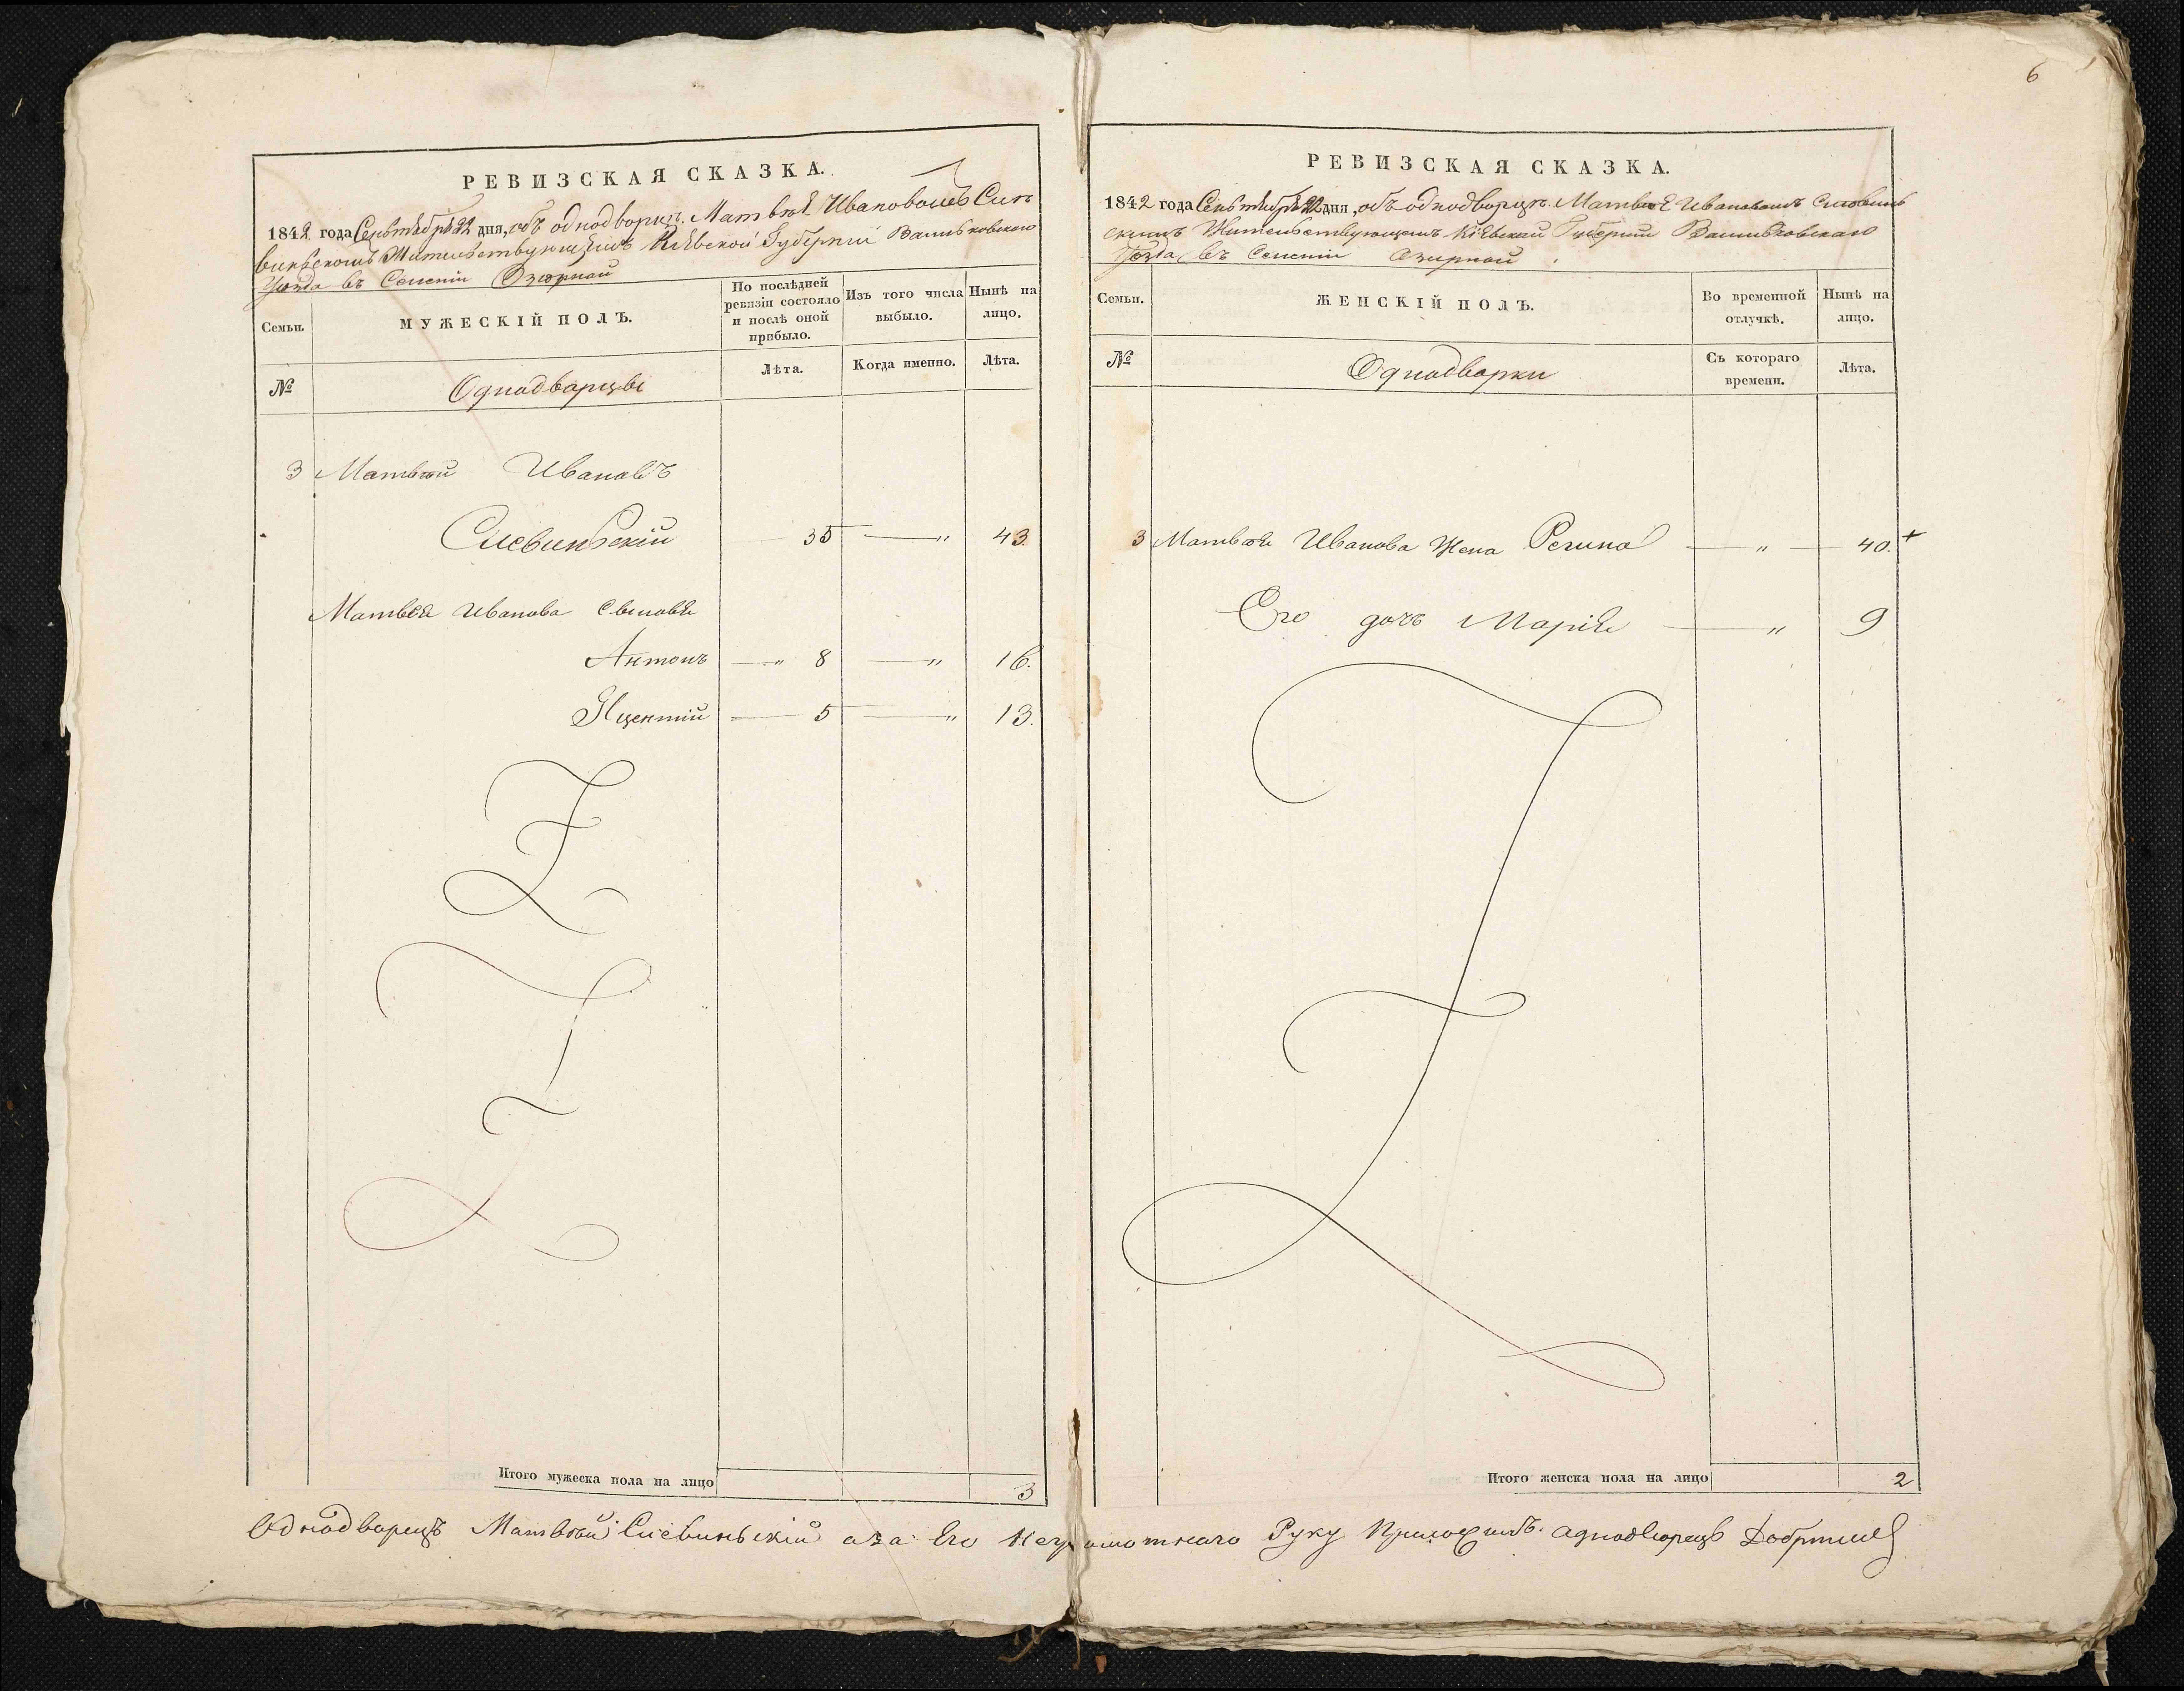 6
РЕВИЗСКАЯ СКАЗКА.
1842 года Сентября 22 дня, объ однодворцѣ Матвѣѣ Ивановомъ
Жительствующемъ Кіевской Губерніи Васильковскаго
Уѣзда въ Селеніи Озирной
Семьи.
МУЖЕСКІЙ ПОЛЪ.
По послѣдней ревизіи состояло и послѣ оной прибыло.
Изъ того числа выбыло.
Нынѣ на лицо.
№
Однодворцы
Лѣта.
Когда именно.
Лѣта.
3 Матвѣй Ивановъ
Слевиньскій 35 — " 43.
Матвѣя Иванова Сыновья
Антонъ — " 8 — " 16.
Яцентій — 5 — " 13.
Итого мужеска пола на лицо 3
РЕВИЗСКАЯ СКАЗКА.
1842 года Сентября 22 дня, объ однодворцѣ Матвѣѣ Ивановомъ
Жительствующемъ Кіевской Губерніи Васильковскаго
Уѣзда въ Селеніи Озирной
Семьи.
ЖЕНСКІЙ ПОЛЪ.
Во временной отлучкѣ.
Нынѣ на лицо.
№
Однодворки
Съ котораго времени.
Лѣта.
3 Матвѣя Иванова Жена Регина — " — 40. +
Его дочь Марія — " 9
Итого женска пола на лицо 2
Однодворецъ Матвѣй Слевиньскій аза Его Неграмотнаго Руку Приложилъ однодворецъ